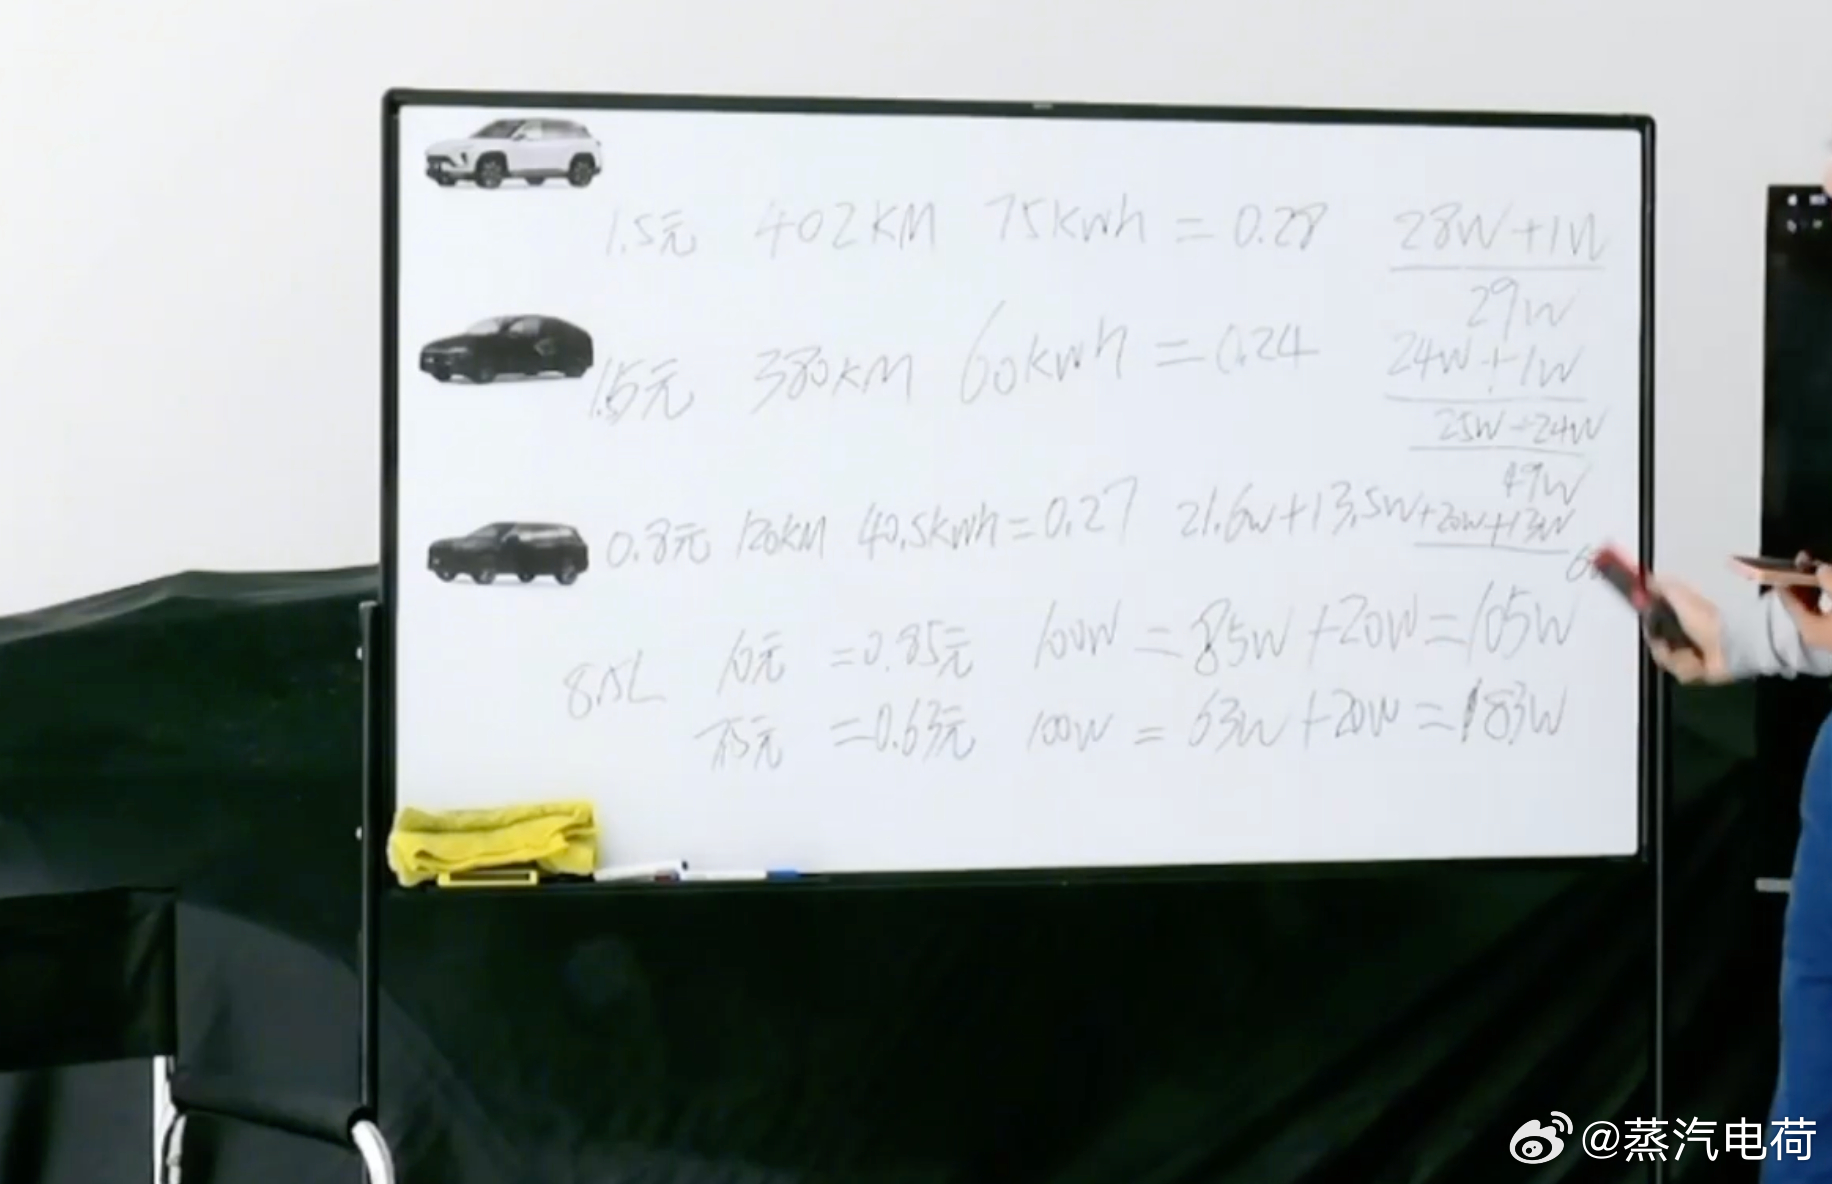 1.5元 402KM 75kwh = 0.28 28W+1W
29W
1.5元 380KM 60kwh = 0.24 24W+1W
25W+24W
49W
0.8元 120KM 40.5kwh = 0.27 21.6w+13.5w+20w+13W
8.5L 10元 =0.85元 100W = 85W+20W=105W
7.5元 =0.63元 100W = 63W+20W=183W
@蒸汽电荷